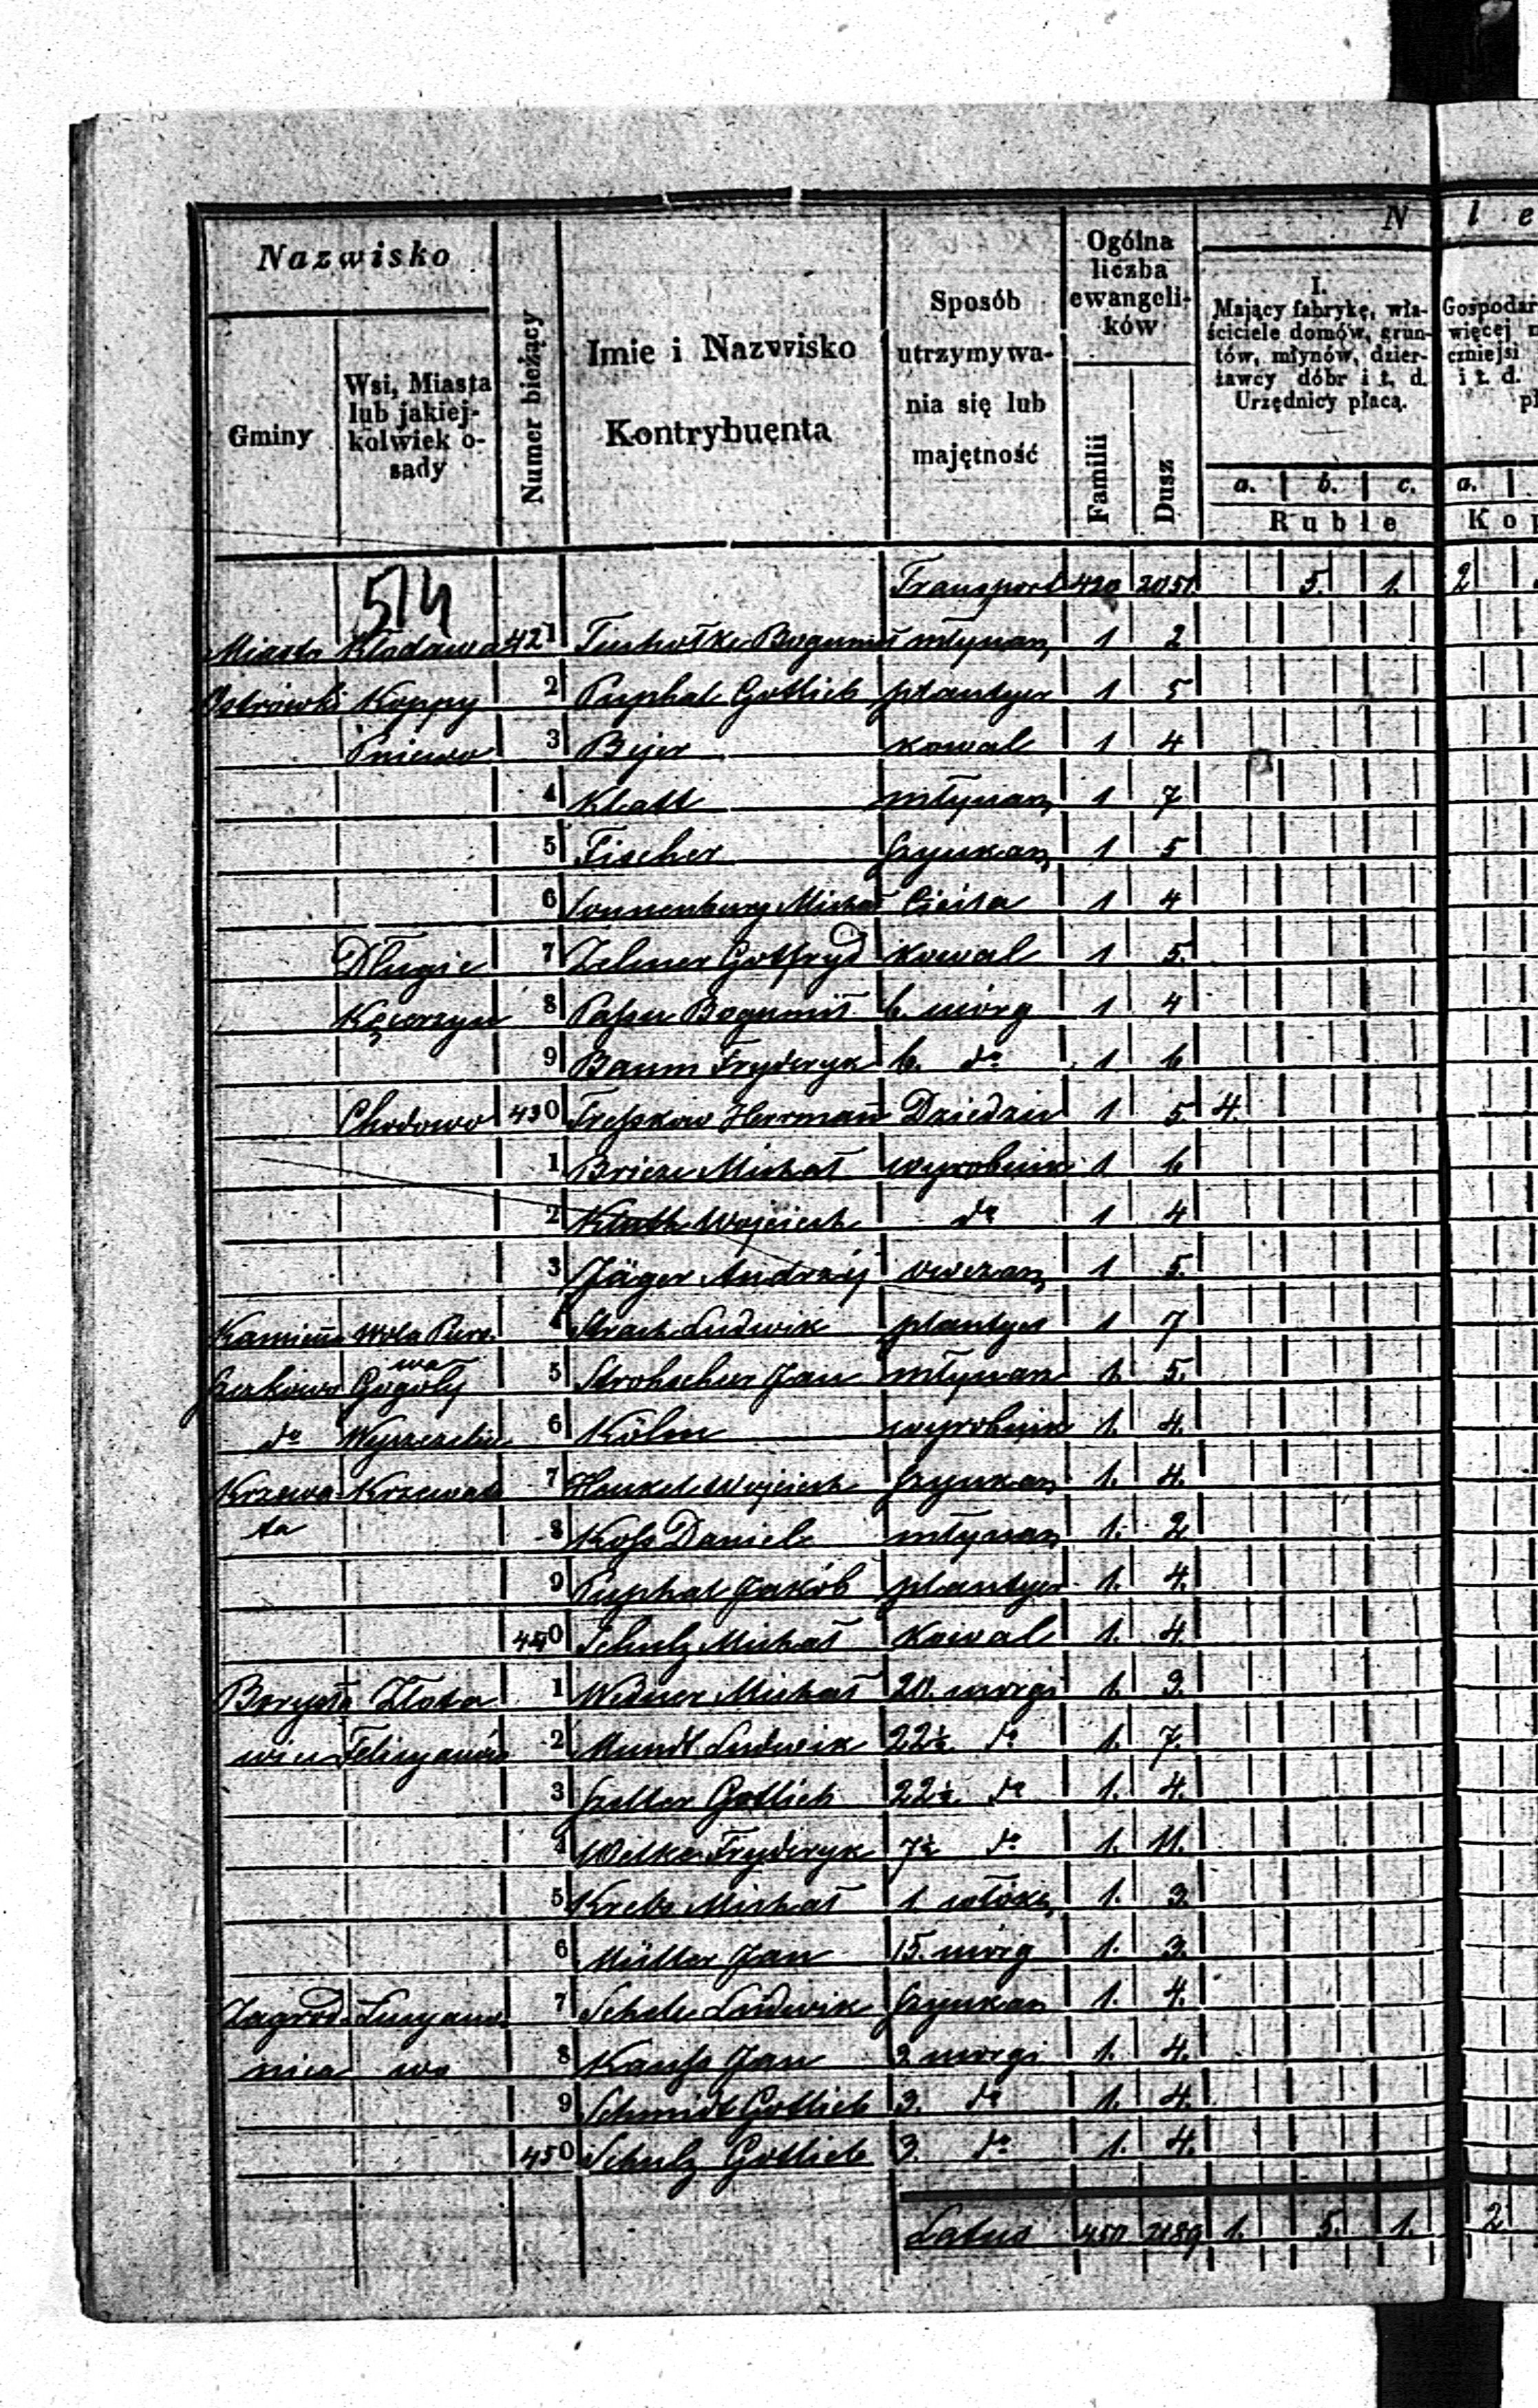 Nazwisko
Gminy
Wsi, Miasta
lub jakiej-
kolwiek o-
sady
Numer bieżący
Imie i Nazwisko
Kontrybuenta
Sposób
utrzymywa-
nia się lub
majętność
Ogólna
liczba
ewangeli-
ków
Familii
Dusz
N
I.
Mający fabrykę, wła-
ściciele domów, grun-
tów, młynów, dzier-
żawcy dóbr i t. d.
Urzędnicy płacą.
a. b. c.
Ruble
l e
Gospodar
więcej
czniejsi
i t. d.
pł
a.
Ko
514
Transport 420 2051 5. 1. 2
Miasto Kłodawa 421 Bogumił młynarz 1 2
Ostrówki Koppy 2 Puphal Gotlieb plantyer 1 5
Pniewo 3 Bejer kowal 1 4
4 Klatt młynarz 1 7
5 Fischer szynkarz 1 5
6 Sonnenburg Michał Cieśla 1 4
Długie 7 Zelmer Gotfryd kowal 1 5.
8 Bogumił 6. mórg 1 4
9 Baum Fryderyk 6. do 1 6
Chodowo 430 Treskow Herrmann Dziedzic 1 5 4.
1 Michał wyrobnik 1 6
2 Wojciech do 1 4
3 Jäger Andrzéj owczarz 1 5.
Wola 4 Strach Ludwik plantyer 1 7
wa
Gogoły 5 Jan młynarz 1. 5.
do 6 wyrobnik 1. 4.
Krzewa- Krzewata 7 Henkel Wojciech szynkarz 1. 4.
ta 8 Koss Daniel młynarz 1. 2
9 Puphal Jakób plantyer 1. 4.
440 Schulz Michał Kowal 1. 4.
Złota 1 Widner Michał 20. morgi 1. 3.
wice Felicyanów 2 Mundt Ludwik 22½ do 1. 7.
3 Gotlieb 22½ do 1. 4.
4 Wilke Fryderyk 7½ do 1. 11.
5 Krebs Michał 1. włóka 1. 3
6 Müller Jan 15. mórg 1. 3.
Zagrod- Lucyano- 7 Ludwik szynkarz 1. 4.
nica wo 8 Jan 3 morgi 1. 4.
9 Schmidt Gotlieb 3. do 1. 4.
450 Schulz Gotlieb 3. do 1. 4.
Latus 450 2189 1. 5. 1. 2